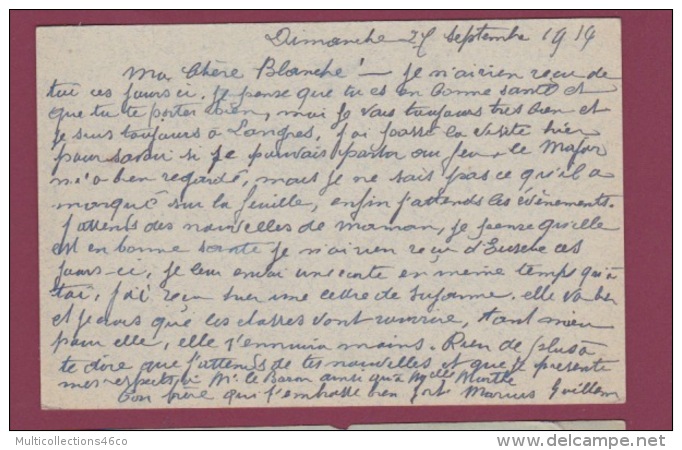 Dimanche 27 septembre 1914
Ma Chère Blanche ! — Je n'ai rien reçu de
toi ces jours ci. Je pense que tu es en bonne santé et
que tu te portes bien, moi je vais toujours très bien et
je suis toujours à Langres, j'ai passé la visite hier
pour savoir si je pouvais partir au feu, le Major
m'a bien regardé, mais je ne sais pas ce qu'il a
marqué sur la feuille, enfin j'attends les évènements.
J'attends des nouvelles de maman, je pense qu'elle
est en bonne santé je n'ai rien reçu d'Eusèbe ces
jours-ci, je leur envoi une carte en même temps qu'à
toi, j'ai reçu hier une lettre de Suzanne. elle va bien
et je crois que les classes vont rouvrire, tant mieu
pour elle, elle s'ennuira moins. Rien de plus à
te dire que j'attends de tes nouvelles et que je présente
mes respects à Mr. le Baron ainsi qu'à Melle Marthe
Ton frère qui t'embrasse bien fort Marius Guillem
Multicollections46co
www.delcampe.net